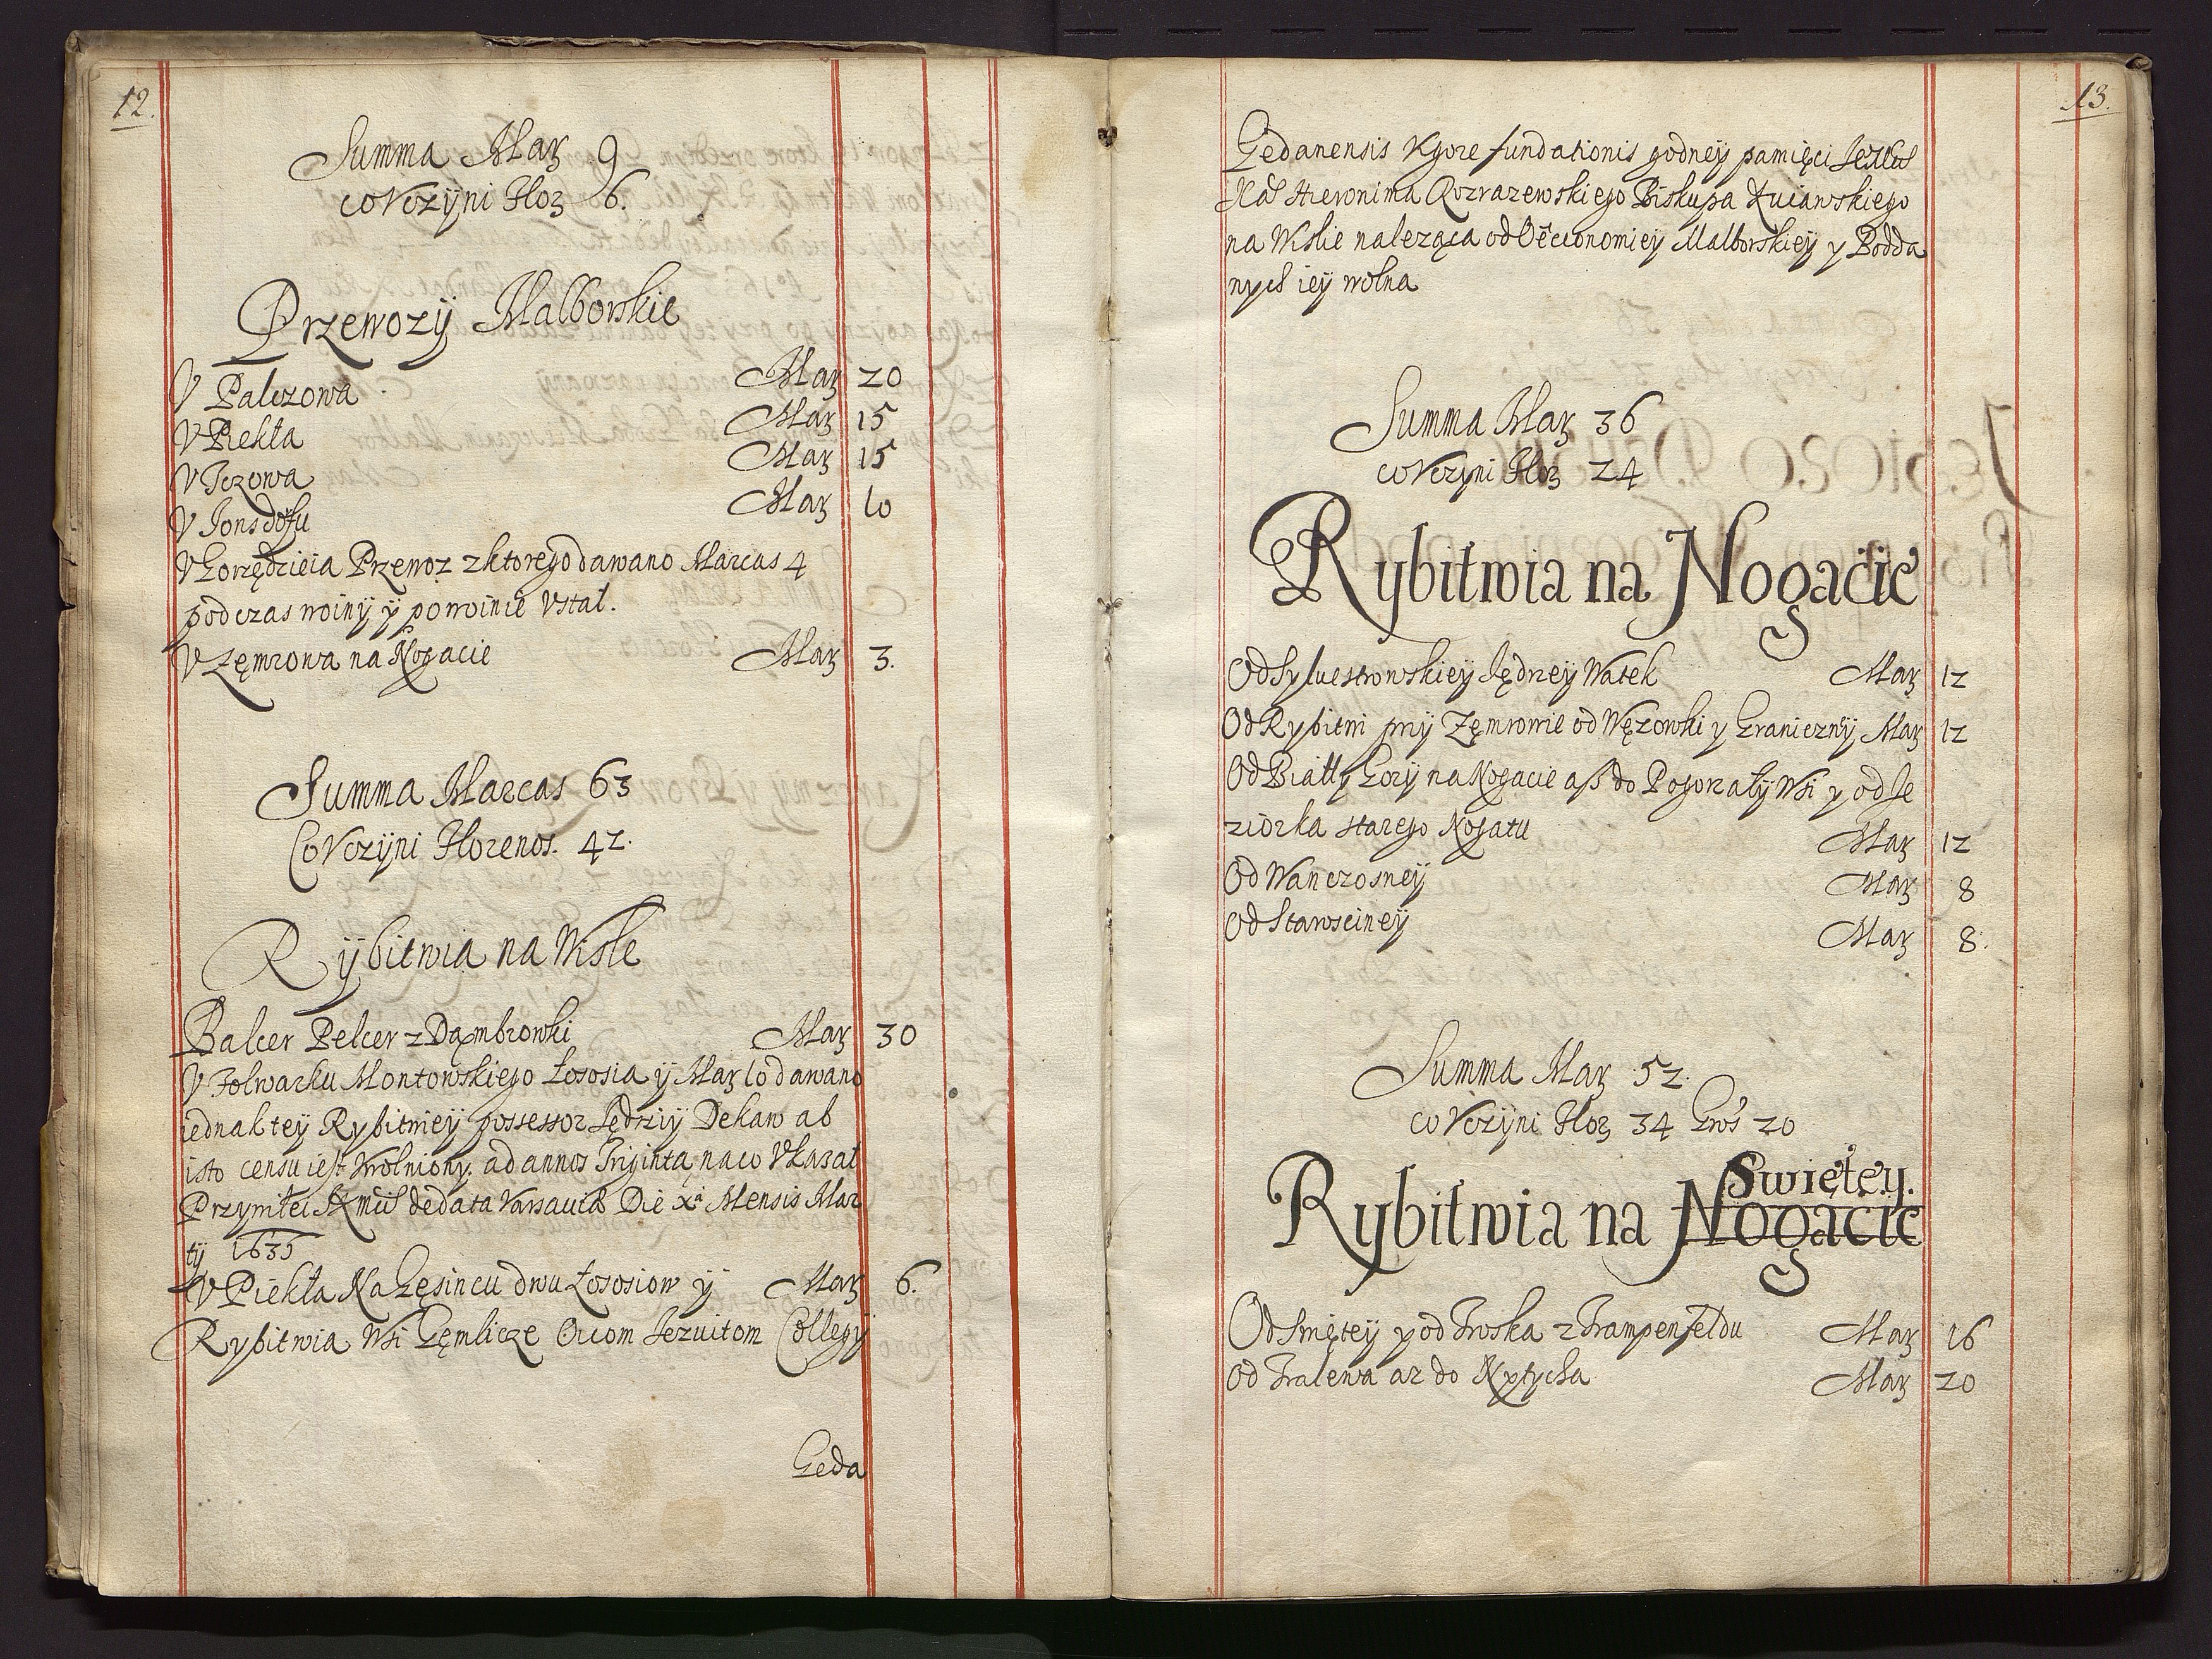 12.
Summa Marz 9
co Vczÿni Floz 6.
Przewozÿ Malborskie
V Palczowa Marz 20
V Piekła Marz 15
V Jezowa Marz 15
V Jonsdofu Marz 10
V Gorzędzieia Przewoz z ktorego dawano Marcas 4
podczas woinÿ ÿ powoinie Vstał.
V Zęmrowa na Nogacie Marz 3.
Summa Marcas 63
Co Vczÿni Florenos. 42.
Rÿbitwia na Wisle
Balcer Pelcer z Dąmbrowki Marz 30
V Folwarku Montowskiego Łososia ÿ Marz 10 dawano
iednak teÿ Rybitwieÿ possessor Sędziÿ Dekaw ab
isto censu iest Vwolniony. ad annos Triginta, na co Vkazał
Przywilei JKmći de data Varsauia Die Xa Mensis Mar
tÿ 1635
V Piekła Na Gęsincu dwu Łososiow ÿ Marz 6.
Rybitwia Wśi Gęmlicze Oicom Jezuitom Collegÿ
Geda
13.
Gedanensis Vgore fundationis godneÿ pamięci Jeº
Mći Hieronima Rozrazewskiego Biskupa Kuiawskiego
na Wislie naleząca od Oeconomieÿ Malborskieÿ y Podda
nych ieÿ wolna
Summa Marz 36
co Vczyni Floz 24
Rybitwia na Nogacie
Od Syluestrowskieÿ Jędrzeÿ Watek Marz 12
Od Rybitwi przÿ Zęmrowie od Węzowki y Granicznÿ Marz 12
Od Białły Gorÿ na Nogacie asz do Pogorzałÿ Wśi y od Je
ziorka starego Nogatu Marz 12
Od Wanczosneÿ Marz 8
Od Starosćineÿ Marz 8.
Summa Marz 52.
co Vczÿni Floz 34 Gros 20
Swiętey.
Rybitwia na Nogacie
Od Swięteÿ y od Twoska z Trampenfeldu Marz 16
Od Tralewa az do Nÿtycha Marz 20